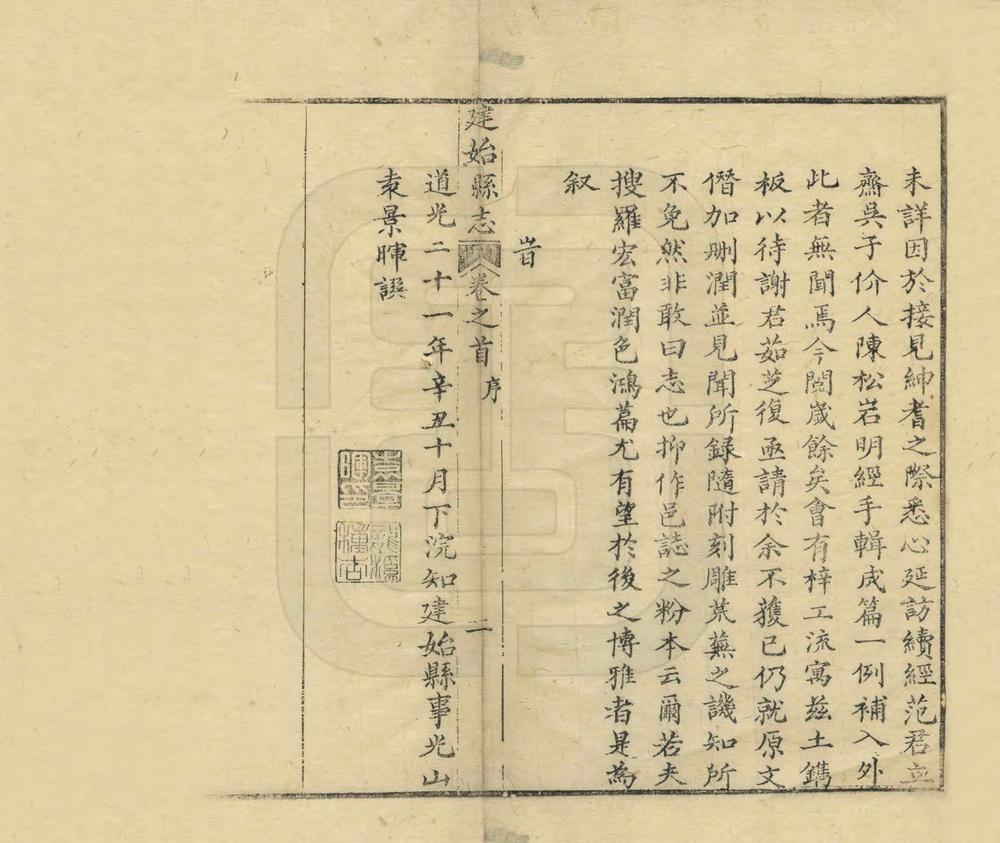 未詳因於接見紳耆之際悉心延訪續經范君立
齋吳子价人陳松岩明經手輯成篇一例補入外
此者無聞焉今閱歲餘矣會有梓工流寓茲土鐫
板以待謝君茹芝復亟請於余不獲已仍就原文
僭加刪潤並見聞所録隨附刻雕荒蕪之譏知所
不免然非敢曰志也抑作邑誌之粉本云爾若夫
搜羅宏富潤色鴻篇尤有望於後之博雅者是為
叙
旹
建始縣志 卷之首 序 二
道光二十一年辛丑十月下浣知建始縣事光山
袁景暉譔
袁景暉印